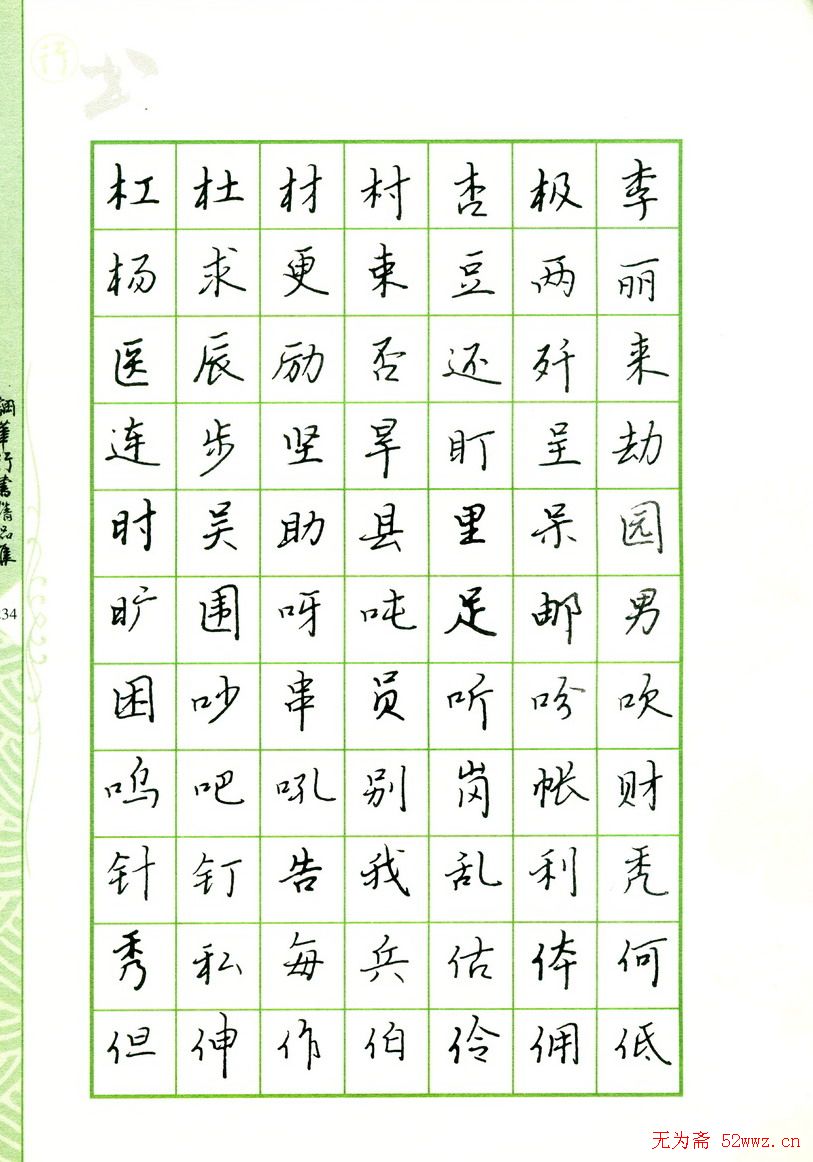 行书
杠杜材村杏极李
杨求更束豆两丽
医辰励否还歼来
连步坚旱盯呈劫
时吴助县里呆园
旷围呀吨足邮男
困吵串员听吩吹
呜吧吼别岗帐财
针钉告我乱利秃
秀私每兵估体何
但伸作伯伶佣低
华行书精品集
34
无为斋 52wwz.cn